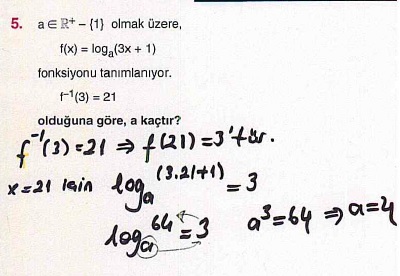 5. a ∈ ℝ⁺ – {1} olmak üzere,
f(x) = logₐ(3x + 1)
fonksiyonu tanımlanıyor.
f⁻¹(3) = 21
olduğuna göre, a kaçtır?
f⁻¹(3) = 21 ⇒ f(21) = 3'tür.
x = 21 için logₐ(3.21+1) = 3
logₐ64 = 3 a³ = 64 ⇒ a = 4